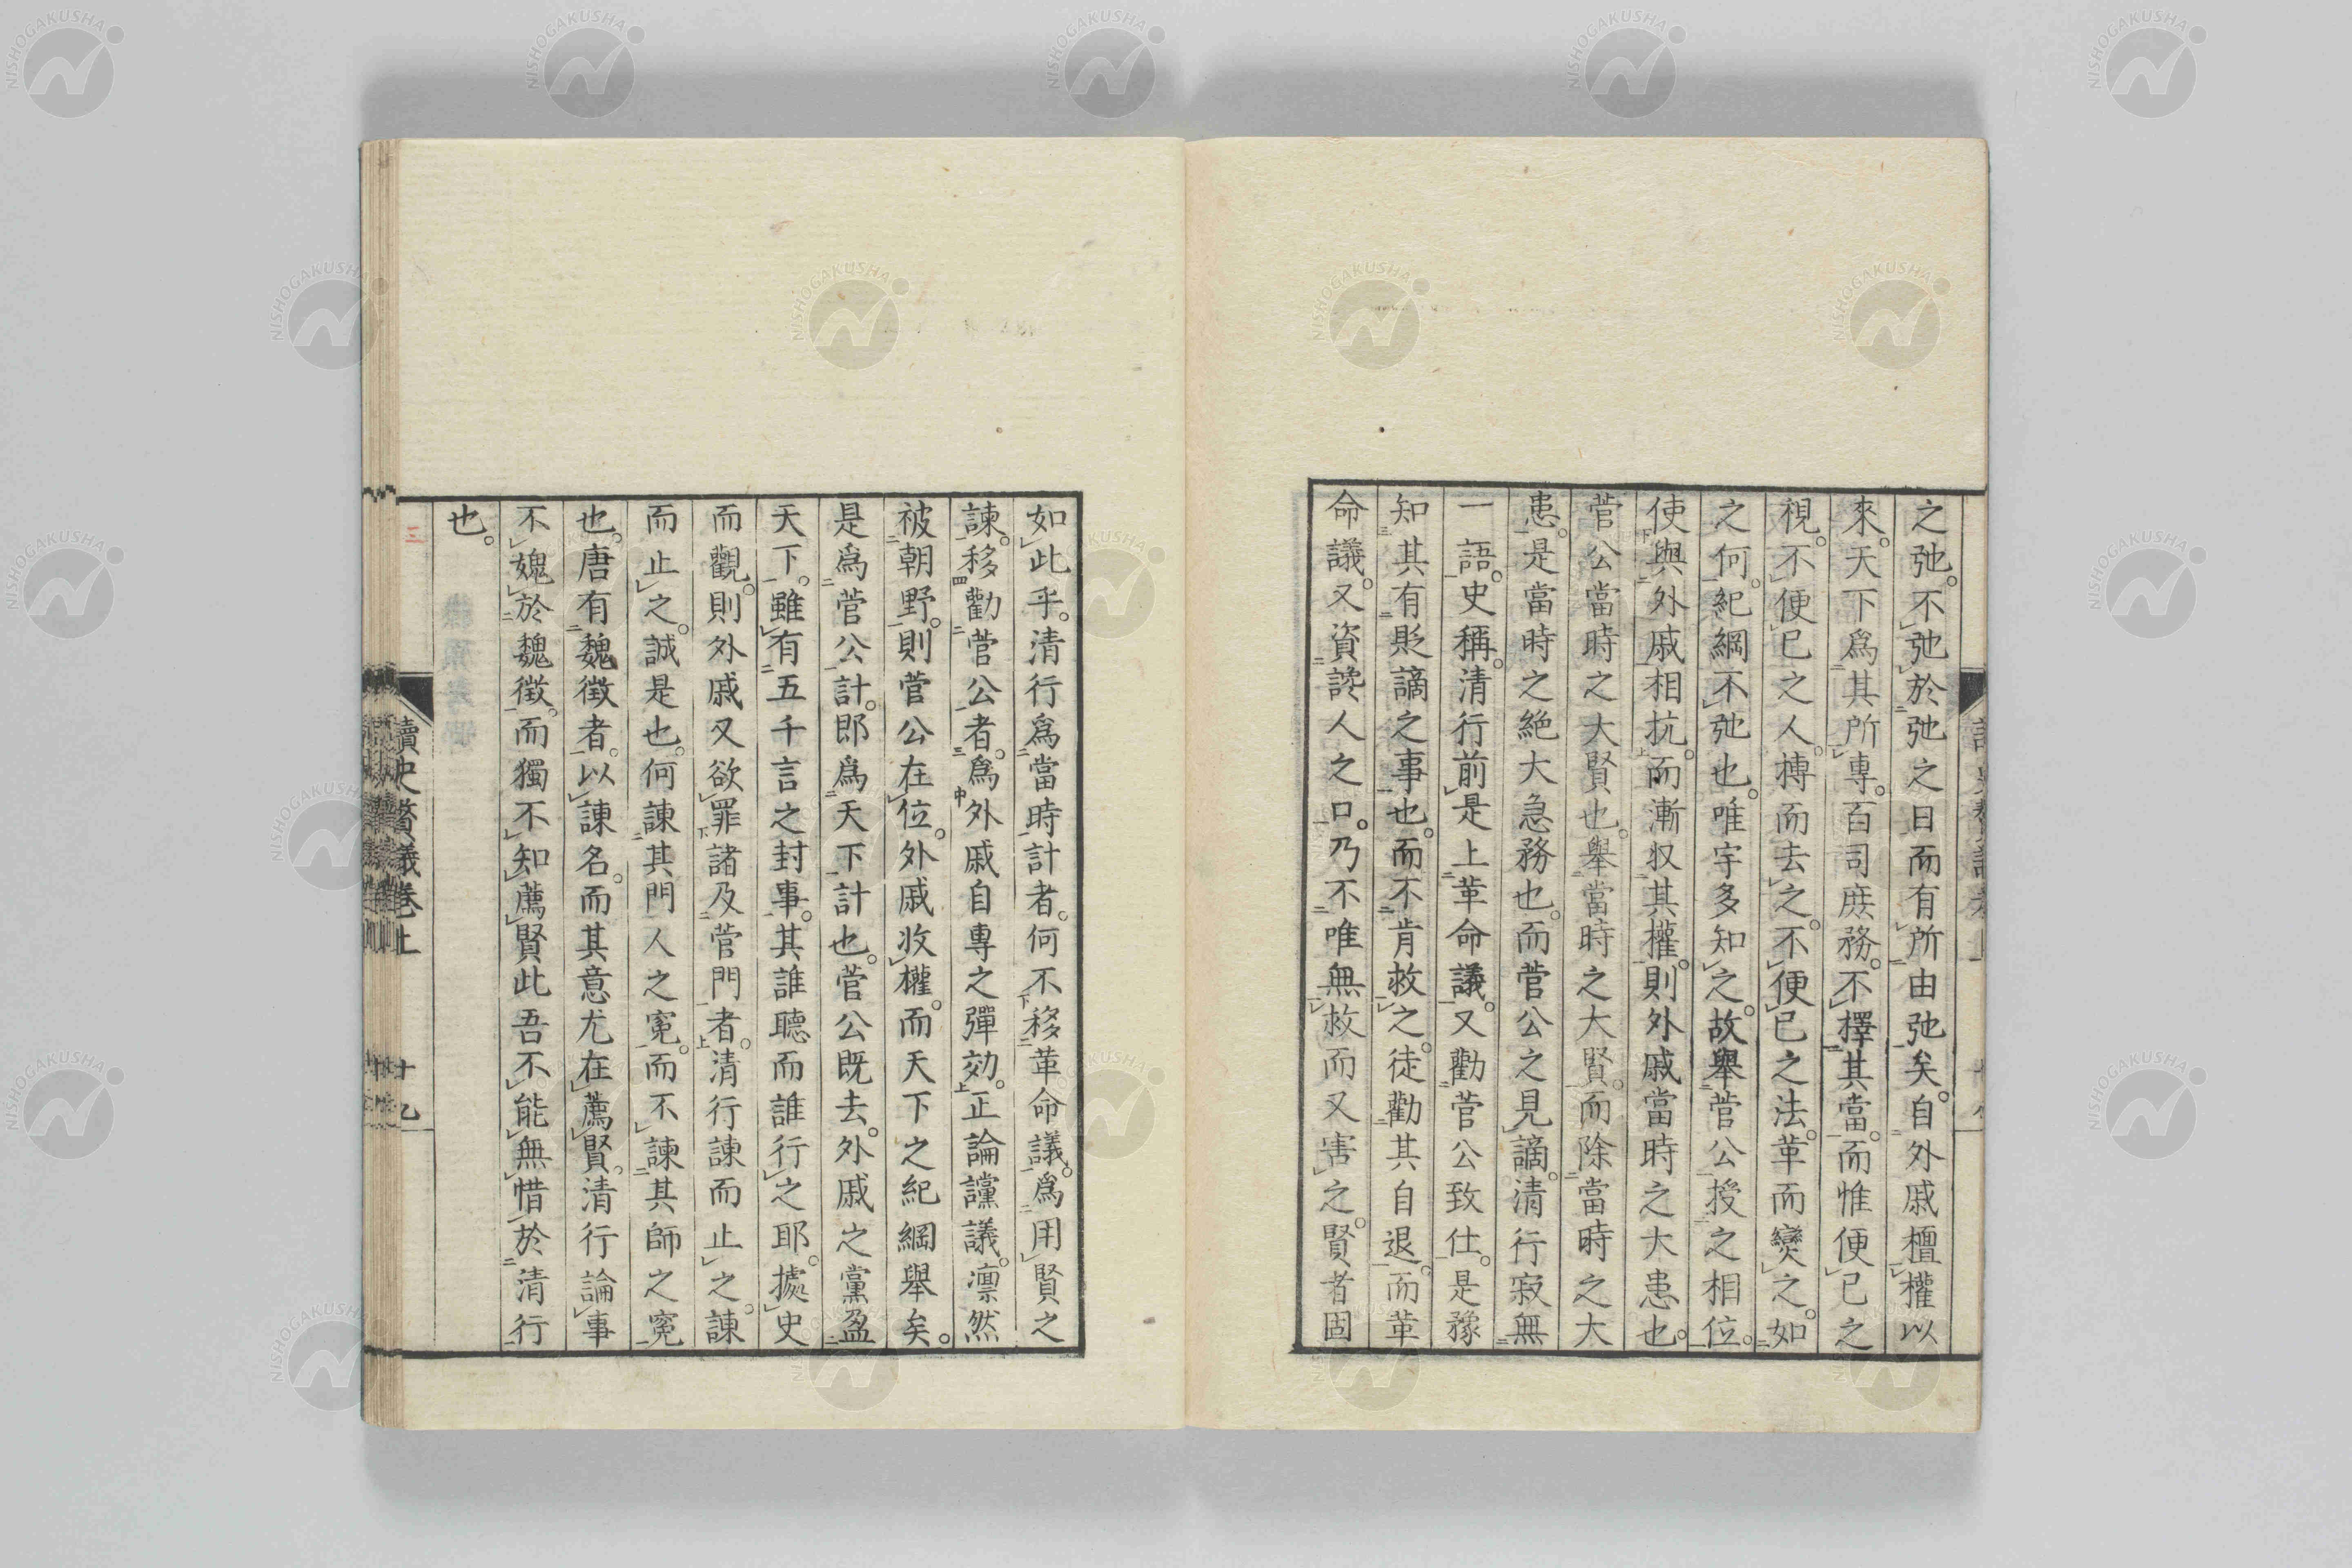 之弛。不弛於弛之日而有所由弛矣。自外戚檀權以
來。天下爲其所專。百司庶務。不擇其當。而惟便已之
視。不便已之人。搏而去之。不便已之法。革而變之。如
之何。紀綱不弛也。唯宇多知之。故舉菅公授之相位。
使與外戚相抗。而漸収其權。則外戚當時之大患也。
菅公當時之大賢也。舉當時之大賢。而除當時之大
患。是當時之絶大急務也。而菅公之見謫。清行寂無
一語。史稱。清行前是上革命議。又勸菅公致仕。是豫
知其有貶謫之事也。而不肯救之。徒勸其自退。而革
命議。又資讒人之口。乃不唯無救而又害之。賢者固
如此乎。清行爲當時計者。何不移革命議。爲用賢之
諫。移勸菅公者。爲外戚自專之彈効。正論讜議。凛然
被朝野。則菅公在位。外戚收權。而天下之紀綱舉矣。
是爲菅公計。即爲天下計也。菅公既去。外戚之黨盈
天下。雖有五千言之封事。其誰聽而誰行之耶。據史
而觀。則外戚又欲罪諸及菅門者。清行諫而止之。諫
而止之。誠是也。何諫其門人之寃。而不諫其師之寃
也。唐有魏徴者。以諫名。而其意尤在薦賢。清行論事
不媿於魏徴。而獨不知薦賢此吾不能無惜於清行
也。
讀史贅議卷上
十九
NISHOGAKUSHA